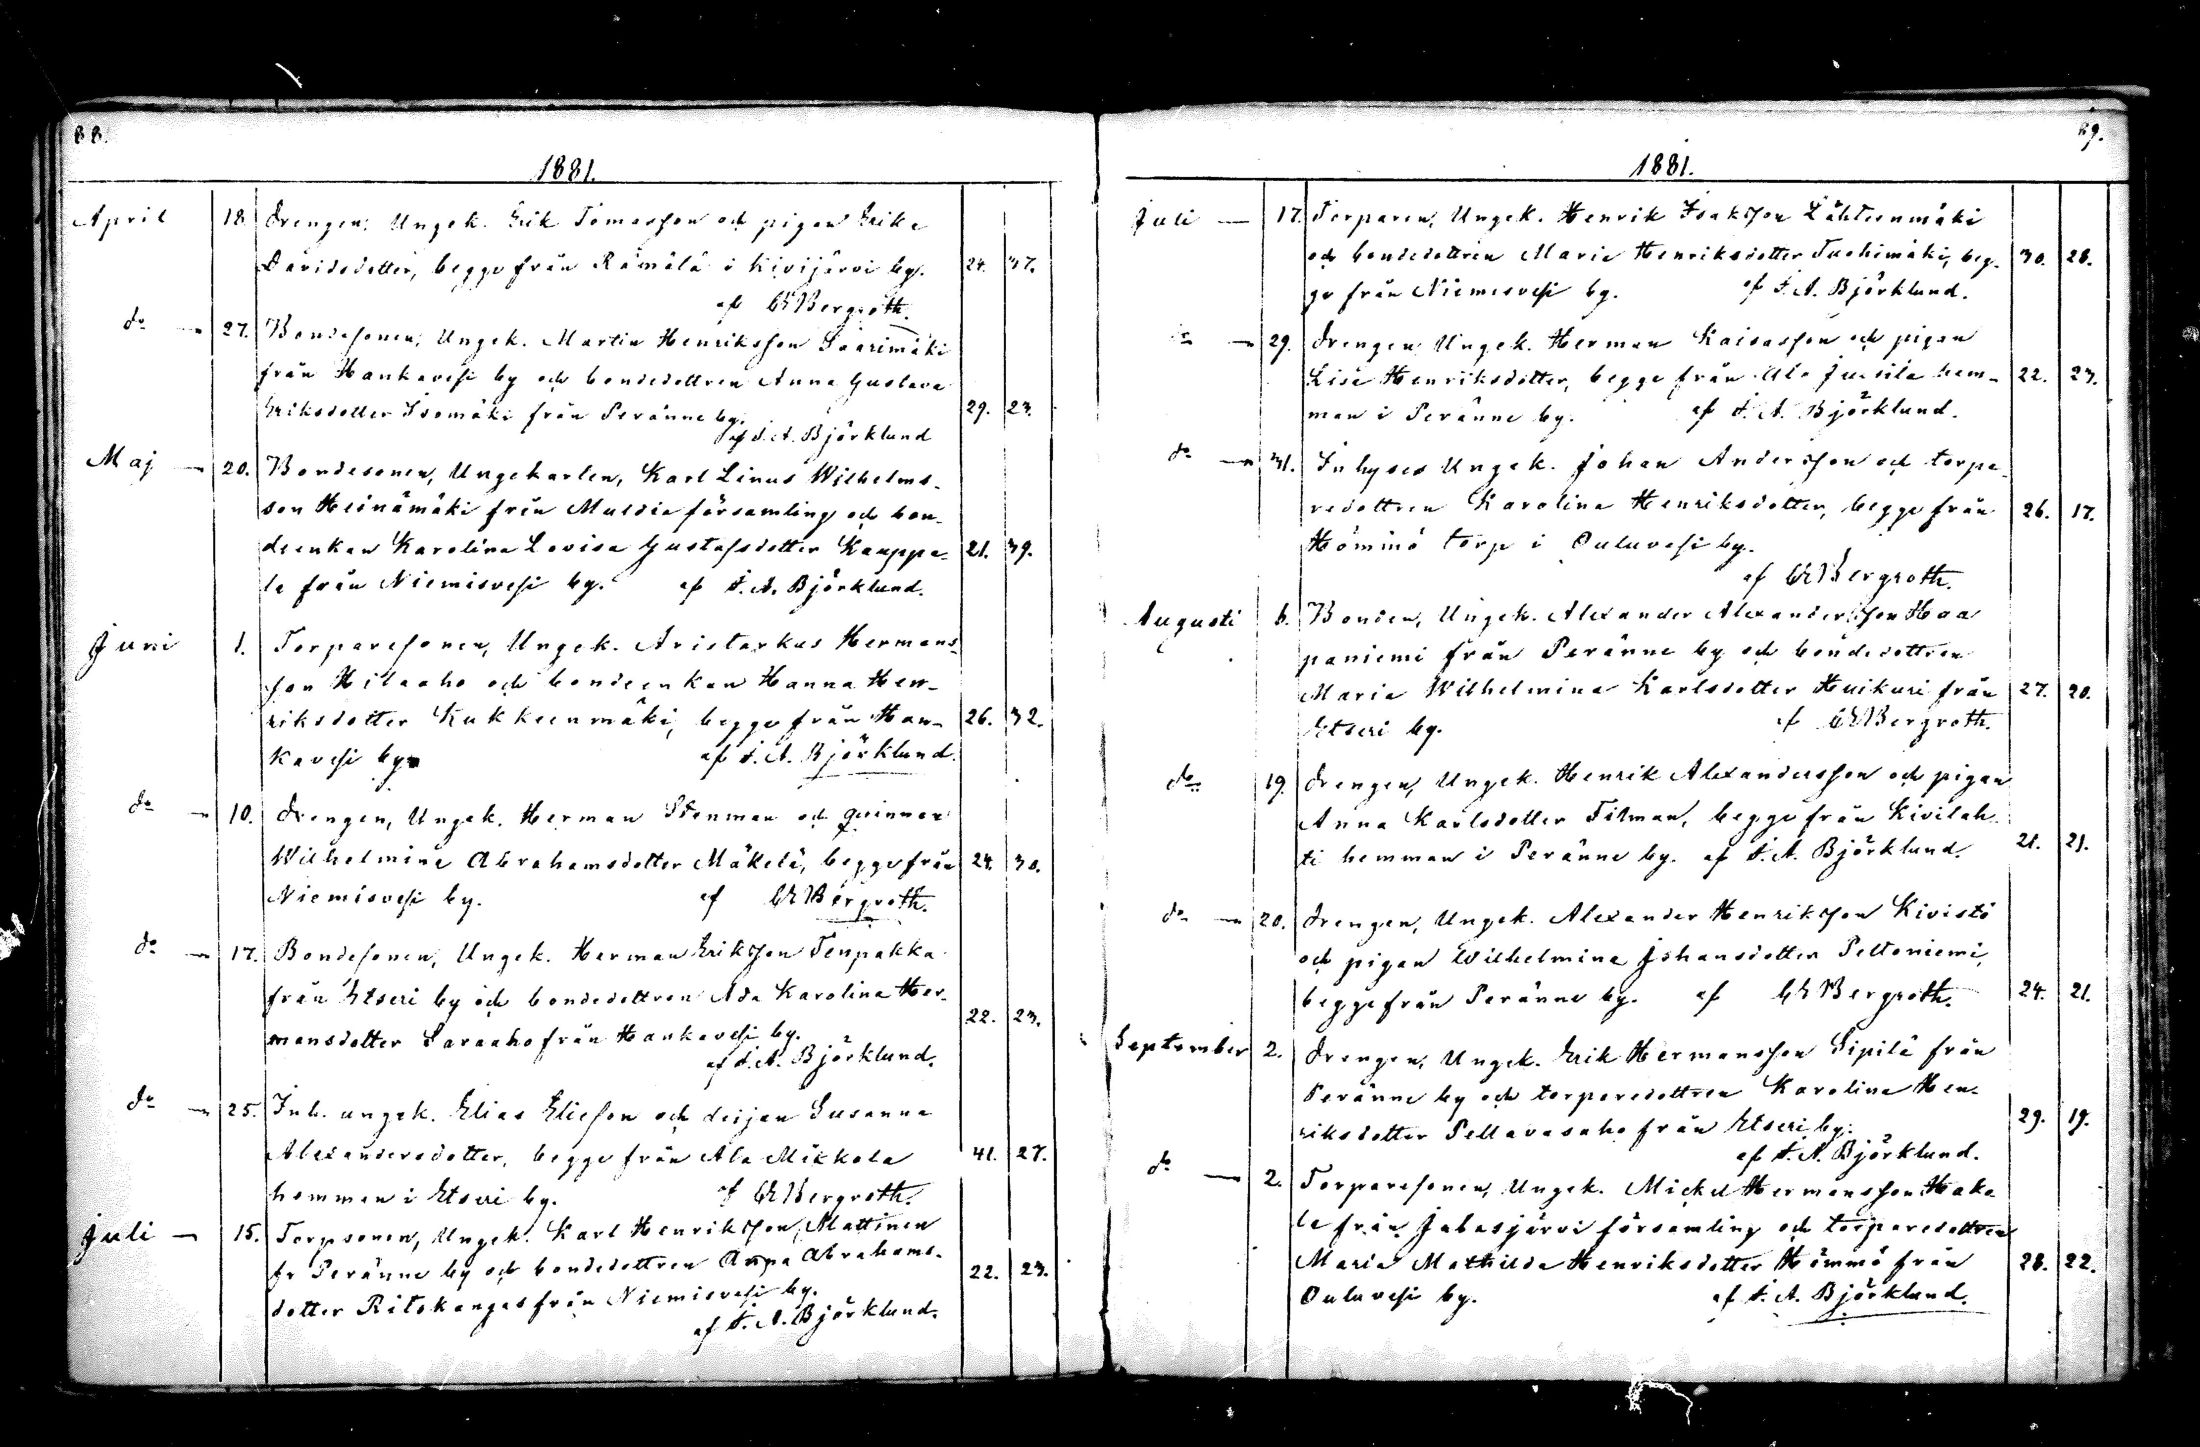 88.
1881.
April 18. Drengen, Ungek. Erik Tomasson och pigan Erika
Davidsdotter, begge från Rämälä i Kivijärvi by. 24. 37.
af CE Bergroth.
do 27. Bondesonen, Ungek. Martin Henriksson Saarimäki
från Hankavesi by och bondedottren Anna Gustava
Eriksdotter Isomäki från Peränne by. 29. 23.
af F. A. Björklund
Maj 20. Bondesonen, Ungekarlen, Karl Linus Wilhelms-
son Heinämäki från Multia församling och bon-
deenkan Karolina Lovisa Gustafsdotter Kauppa- 21. 39.
la från Niemisvesi by. af F. A. Björklund.
Juni 1. Torparesonen, Ungek. Aristarkus Hermans-
son Hilaaho och bondeenkan Hanna Hen-
riksdotter Kukkeenmäki, begge från Han- 26. 32.
kavesi by. af F. A. Björklund.
do 10. Drengen, Ungek. Herman Stenman och qvinnan
Wilhelmina Abrahamsdotter Mäkelä, begge från 24. 30.
Niemisvesi by. af CE Bergroth.
do 17. Bondesonen, Ungek. Herman Eriksson Tenpakka
från Etseri by och bondedottren Ada Karolina Her-
mansdotter Saraaho från Hankavesi by. 22. 23.
af F. A. Björklund.
do 25. Inh. ungek. Elias Eliesson och deijan Susanna
Alexandersdotter, begge från Ala Mikkola 41. 27.
hemman i Etseri by. af CE Bergroth.
Juli 15. Torpsonen, Ungek. Karl Henriksson, Mattinen
fr Peränne by och bondedottren Anna Abrahams-
dotter Ritokangas från Niemisvesi by. 22. 23.
af F. A. Björklund.
89.
1881.
Juli 17. Torparen, Ungek. Henrik Isaksson Lähteenmäki
och bondedottren Maria Henriksdotter Tuohimäki, beg- 30. 28.
ge från Niemisvesi by. af F. A. Björklund.
do 29. Drengen Ungek. Herman Kaisasson och pigan
Lisa Henriksdotter, begge från Ala Jussila hem- 22. 23.
man i Peränne by. af F. A. Björklund.
do 31. Inhyses Ungek. Johan Andersson och torpa-
redottren Karolina Henriksdotter, begge från 26. 17.
Hömmö torp i Ouluvesi by.
af CE Bergroth.
Augusti 6. Bonden, Ungek. Alexander Alexandersson Haa
paniemi från Peränne by och bondedottren
Maria Wilhelmina Karlsdotter Huikuri från 27. 20.
Etseri by. af CE Bergroth.
do 19. Drengen, Ungek. Henrik Alexandersson och pigan
Anna Karlsdotter Tilman, begge från Kivilah
ti hemman i Peränne by. af F. A. Björklund. 21. 21.
do 20. Drengen, Ungek. Alexander Henriksson Kivistö
och pigan Wilhelmina Johansdotter Peltoniemi,
begge från Peränne by. af CE Bergroth. 24. 21.
September 2. Drengen, Ungek. Erik Hermansson Sipilä från
Peränne by och torparedottren Karolina Hen-
riksdotter Pellavasaho från Etseri by. 29. 19.
af F. A. Björklund.
do 2. Torparesonen, Ungek. Mickel Hermansson Haka
la från Jalasjärvi församling och torparedottren
Maria Mathilda Henriksdotter Hömmö från 28. 22.
Ouluvesi by. af F. A. Björklund.